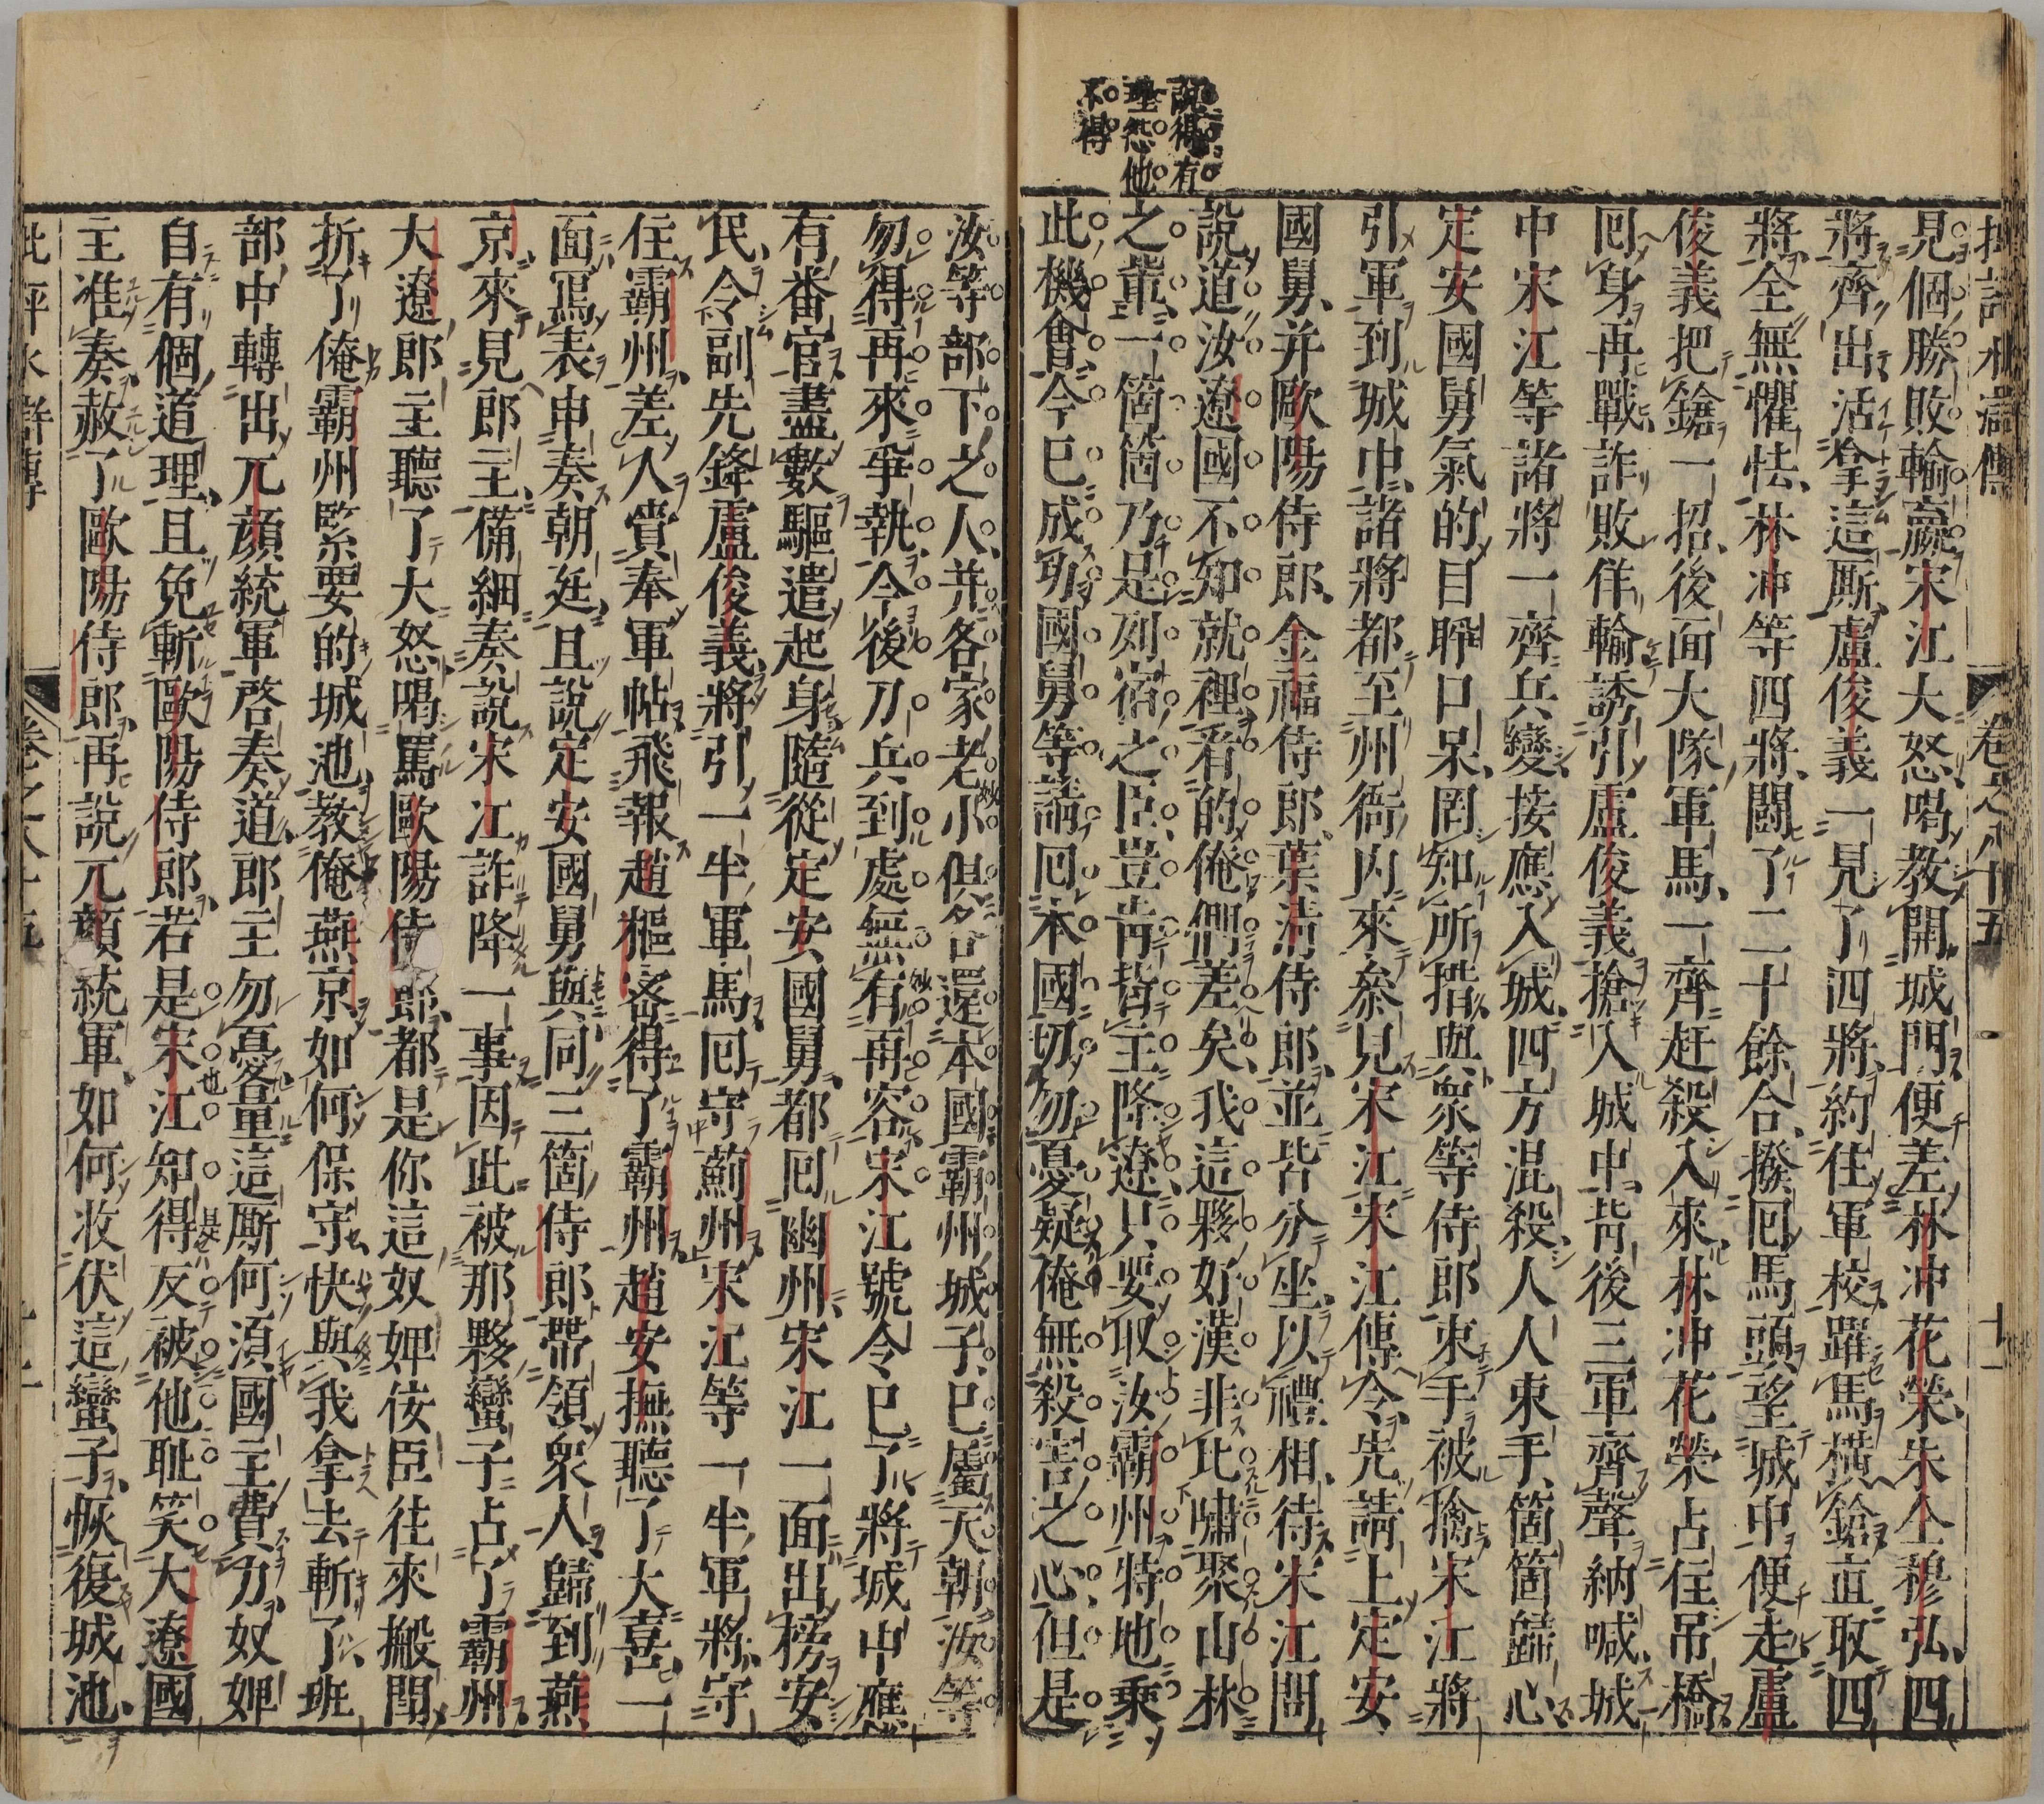 批評水滸傳
卷之八十五
十一
說得有
理怨他
不得
見個勝敗輸贏宋江大怒喝教開城門便差林冲花榮朱仝穆弘四
將齊出活拿這厮盧俊義一見了四將約住軍校躍馬橫鎗直取四
將全無懼怯林冲等四將鬪了二十餘合撥囘馬頭望城中便走盧
俊義把鎗一招後面大隊軍馬一齊赶殺入來林冲花榮占住吊橋
囘身再戰詐敗佯輸誘引盧俊義搶入城中背後三軍齊聲納喊城
中宋江等諸將一齊兵變接應入城四方混殺人人束手箇箇歸心
定安國舅氣的目睜口呆罔知所措與衆等侍郎束手被擒宋江將
引軍到城中諸將都至州衙内來叅見宋江宋江傳令先請上定安
國舅并歐陽侍郎金福侍郎葉清侍郎並皆分坐以禮相待宋江問
說道汝遼國不知就裡看的俺們差矣我這夥好漢非比嘯聚山林
之輩一箇箇乃是列宿之臣豈肯背主降遼只要取汝霸州特地乘
此機會今已成功國舅等請囘本國切勿憂疑俺無殺害之心但是
汝等部下之人并各家老小俱各還本國霸州城子已屬天朝汝等
勿得再來爭執今後刀兵到處無有再容宋江號令已了將城中應
有番官盡數驅遣起身隨從定安國舅都囘幽州宋江一面出榜安
民令副先鋒盧俊義將引一半軍馬囘守薊州宋江等一半軍將守
住霸州差人賫奉軍帖飛報趙樞密得了霸州趙安撫聽了大喜一
面寫表申奏朝廷且說定安國舅與同三箇侍郎帶領衆人歸到燕
京來見郎主備細奏說宋江詐降一事因此被那夥蠻子占了霸州
大遼郎主聽了大怒喝罵歐陽侍郎都是你這奴婢佞臣往來搬鬪
折了俺霸州緊要的城池教俺燕京如何保守快與我拿去斬了班
部中轉出兀顔統軍啓奏道郎主勿憂量這厮何須國主費力奴婢
自有個道理且免斬歐陽侍郎若是宋江知得反被他恥笑大遼國
主准奏赦了歐陽侍郎再說兀顔統軍如何收伏這蠻子恢復城池
批評水滸傳
卷之八十五